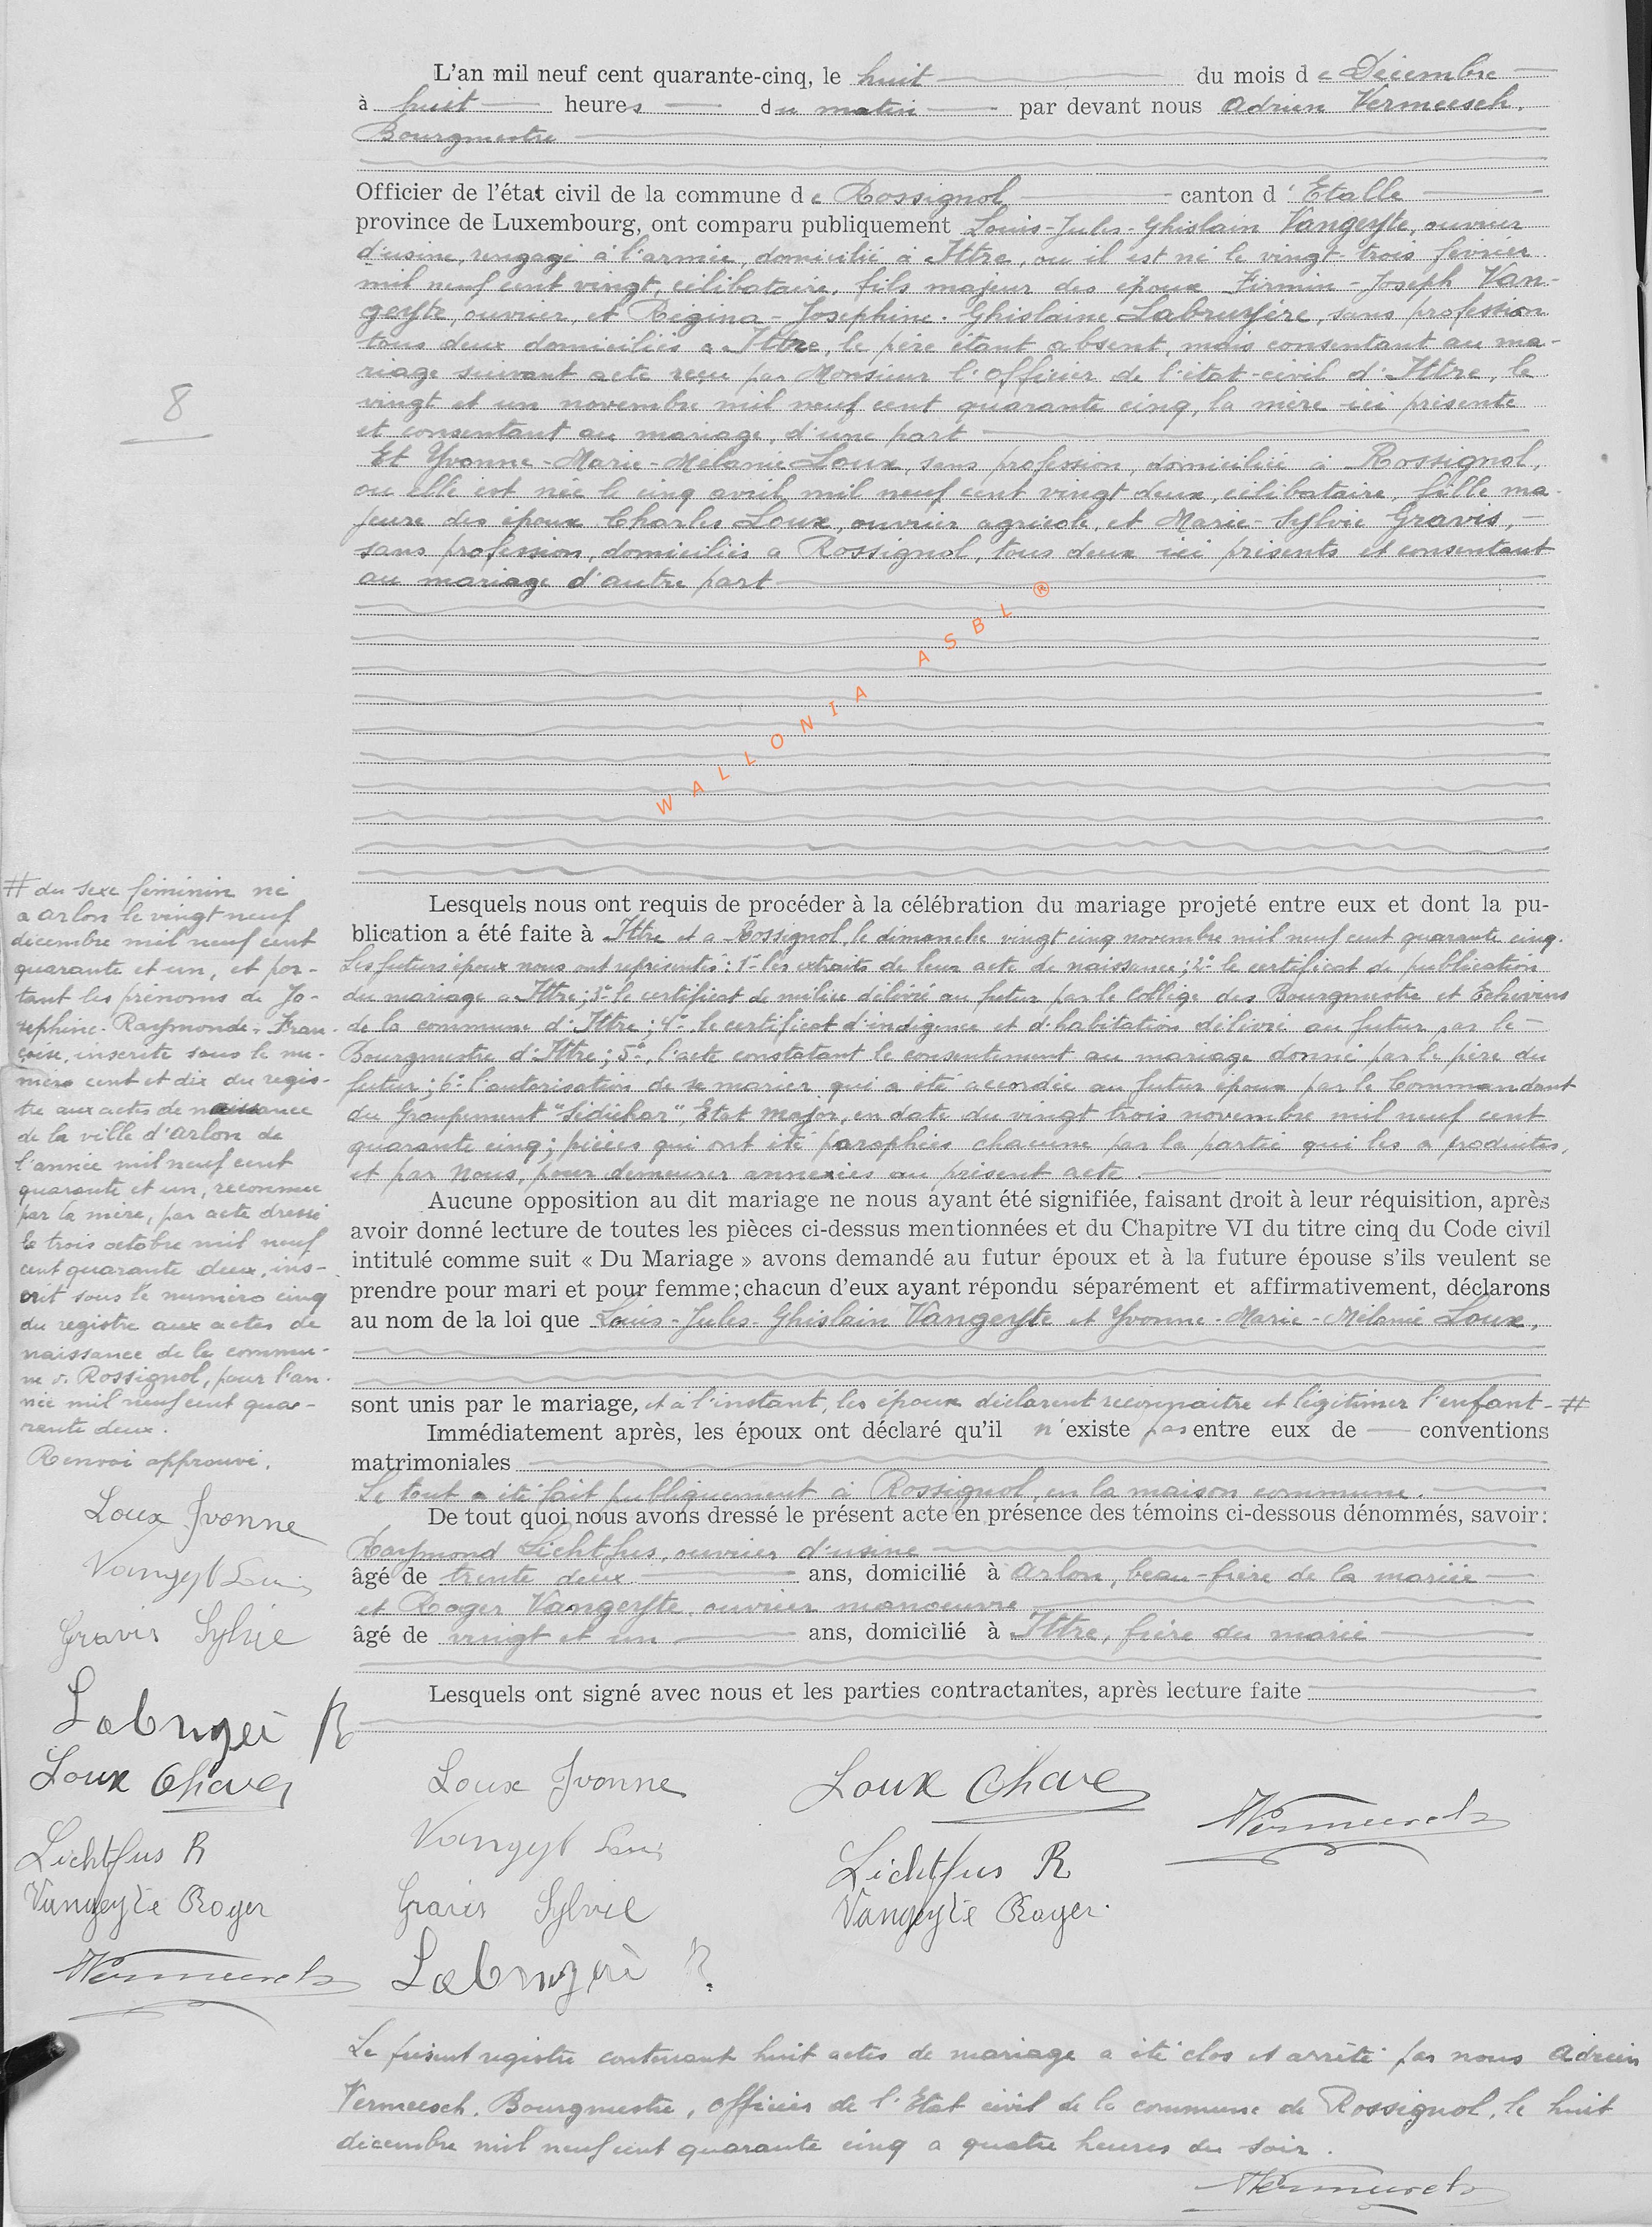 L'an mil neuf cent quarante-cinq, le huit du mois de Décembre
à huit heures du matin par devant nous Adrien Vermeesch.
Bourgmestre
Officier de l'état civil de la commune de Rossignol canton d'Etalle
province de Luxembourg, ont comparu publiquement Louis-Jules-Ghislain Vangeyte, ouvrier
d'usine, rengagé à l'armée, domicilié à Ittre, ou il est né le vingt-trois février
mil neuf cent vingt, célibataire, fils majeur des époux Firmin-Joseph Van-
geyte, ouvrier, et Régina-Josephine-Ghislaine Labruyère, sans profession
tous deux domiciliés à Ittre, le père étant absent, mais consentant au ma-
riage suivant acte reçu par Monsieur l'officier de l'état-civil d'Ittre, le
vingt et un novembre mil neuf cent quarante cinq, la mère ici présente
et consentant au mariage, d'une part
Et Yvonne-Marie-Mélanie Loux, sans profession, domiciliée à Rossignol,
ou elle est née le cinq avril mil neuf cent vingt deux, célibataire, fille ma-
jeure des époux Charles Loux, ouvrier agricole, et Marie-Sylvie Gravis,
sans profession, domiciliés a Rossignol, tous deux ici présents et consentant
au mariage d'autre part
WALLONIA ASBL ®
8
Lesquels nous ont requis de procéder à la célébration du mariage projeté entre eux et dont la pu-
blication a été faite à Ittre et a Rossignol, le dimanche vingt cinq novembre mil neuf cent quarante cinq.
Les futurs époux nous ont représentés: 1° les extraits de leur acte de naissance; 2° le certificat de publication
du mariage a Ittre; 3° le certificat de milice délivré au futur par le Collège des Bourgmestre et Echevins
de la commune d'Ittre; 4° le certificat d'indigence et d'habitation délivré au futur par le
Bourgmestre d'Ittre; 5°, l'acte constatant le consentement au mariage donné par le père du
futur; 6° l'autorisation de se marier qui a été accordée au futur époux par le Commandant
du Groupement Etat major, en date du vingt trois novembre mil neuf cent
quarante cinq; pièces qui ont été paraphées chacune par la partie qui les a produites,
et par Nous, pour demeurer annexées au présent acte.
Aucune opposition au dit mariage ne nous ayant été signifiée, faisant droit à leur réquisition, après
avoir donné lecture de toutes les pièces ci-dessus mentionnées et du Chapitre VI du titre cinq du Code civil
intitulé comme suit « Du Mariage » avons demandé au futur époux et à la future épouse s'ils veulent se
prendre pour mari et pour femme; chacun d'eux ayant répondu séparément et affirmativement, déclarons
au nom de la loi que Louis-Jules-Ghislain Vangeyte et Yvonne-Marie-Mélanie Loux,
sont unis par le mariage, et à l'instant, les époux déclarent reconnaitre et légitimer l'enfant - #
Immédiatement après, les époux ont déclaré qu'il n'existe pas entre eux de conventions
matrimoniales
Le tout a été fait publiquement à Rossignol, en la maison commune.
De tout quoi nous avons dressé le présent acte en présence des témoins ci-dessous dénommés, savoir:
Raymond Lichtfus, ouvrier d'usine
âgé de trente deux ans, domicilié à Arlon, beau-frère de la mariée
et Roger Vangeyte, ouvrier manoeuvre
âgé de vingt et un ans, domicilié à Ittre, frère du marié
Lesquels ont signé avec nous et les parties contractantes, après lecture faite
# du sexe féminin né
a Arlon le vingt neuf
décembre mil neuf cent
quarante et un, et por-
tant les prénoms de Jo-
sephine-Raymonde-Fran-
çoise, inscrite sous le nu-
méro cent et dix du regis-
tre aux actes de naissance
de la ville d'Arlon de
l'année mil neuf cent
quarante et un, reconnue
par la mère, par acte dressé
le trois octobre mil neuf
cent quarante deux, ins-
crit sous le numéro cinq
du registre aux actes de
naissance de la commu-
ne de Rossignol, pour l'an-
née mil neuf cent qua-
rante deux.
Renvoi approuvé.
Loux Yvonne
Vangeyt Louis
Gravis Sylvie
Labruyei R
Loux Charles
Lichtfus R
Vangeyte Roger
Vermeesch
Loux Yvonne
Vangeyt Louis
Gravis Sylvie
Labruyerè R.
Loux Charles
Lichtfus R
Vangeyte Roger.
Vermeesch
Le présent registre contenant huit actes de mariage a été clos et arrêté par nous Adrien
Vermeesch, Bourgmestre, officier de l'Etat civil de la commune de Rossignol, le huit
décembre mil neuf cent quarante cinq a quatre heures du soir.
Vermeesch